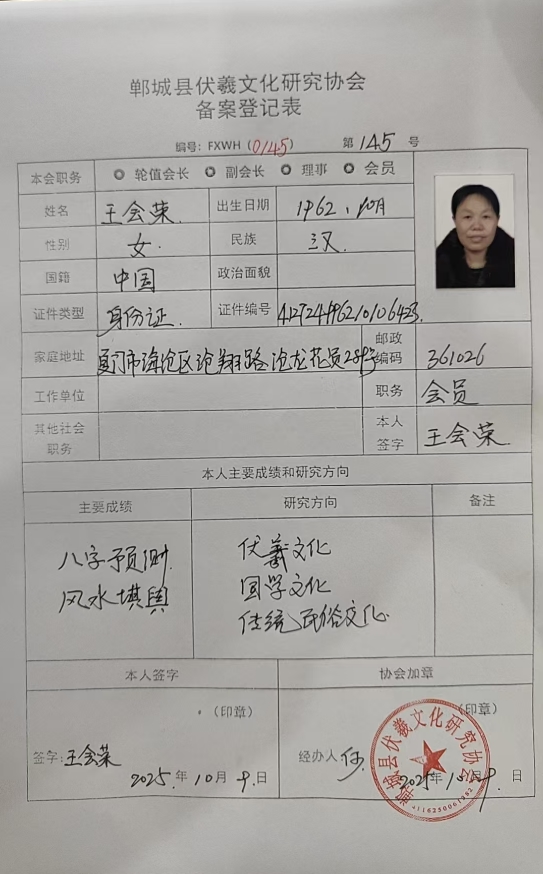 郸城县伏羲文化研究协会
备案登记表
编号：FXWH（0145） 第 145 号
本会职务 轮值会长 副会长 理事 会员
姓名 王会荣 出生日期 1962、10月
性别 女 民族 汉
国籍 中国 政治面貌
证件类型 身份证 证件编号
家庭地址 厦门市海沧区沧翔路 邮政编码 361026
工作单位 职务 会员
其他社会职务 本人签字 王会荣
本人主要成绩和研究方向
主要成绩 研究方向 备注
八字预测 伏羲文化
风水堪舆 国学文化
传统民俗文化
本人签字 协会加章
（印章） （印章）
签字：王会荣 经办人
2025年10月9日 2025年10月9日
郸城县伏羲文化研究协会